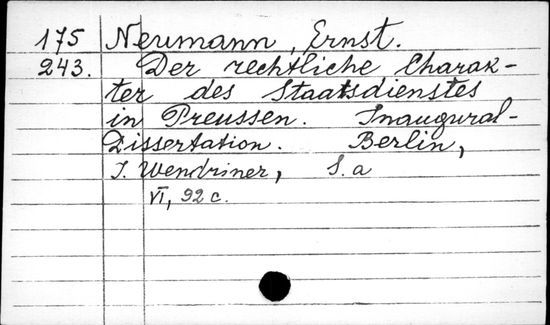 175 Neumann, Ernst.
243. Der rechtliche Charak-
ter des Staatsdienstes
in Preussen. Inaugural-
Dissertation. Berlin,
I. Wendriner, S.a
VI, 92 c.